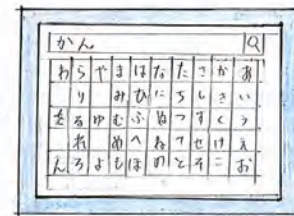 かん
わらやまはなたさかあ
りみひにちしきい
をるゆむふぬつすくう
れめへねてせけえ
んろよもほのとそこお